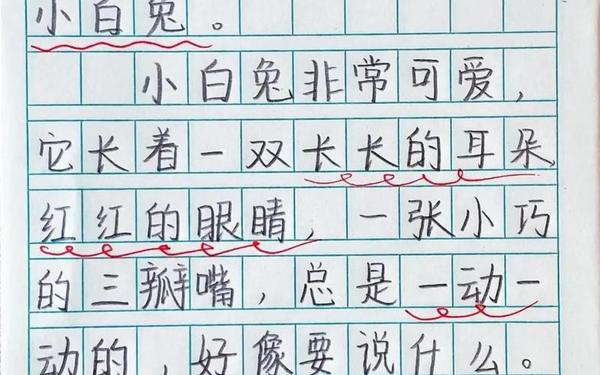 小白兔。
小白兔非常可爱，
它长着一双长长的耳朵
红红的眼睛，一张小巧
的三瓣嘴，总是一动一
动的，好像要说什么。